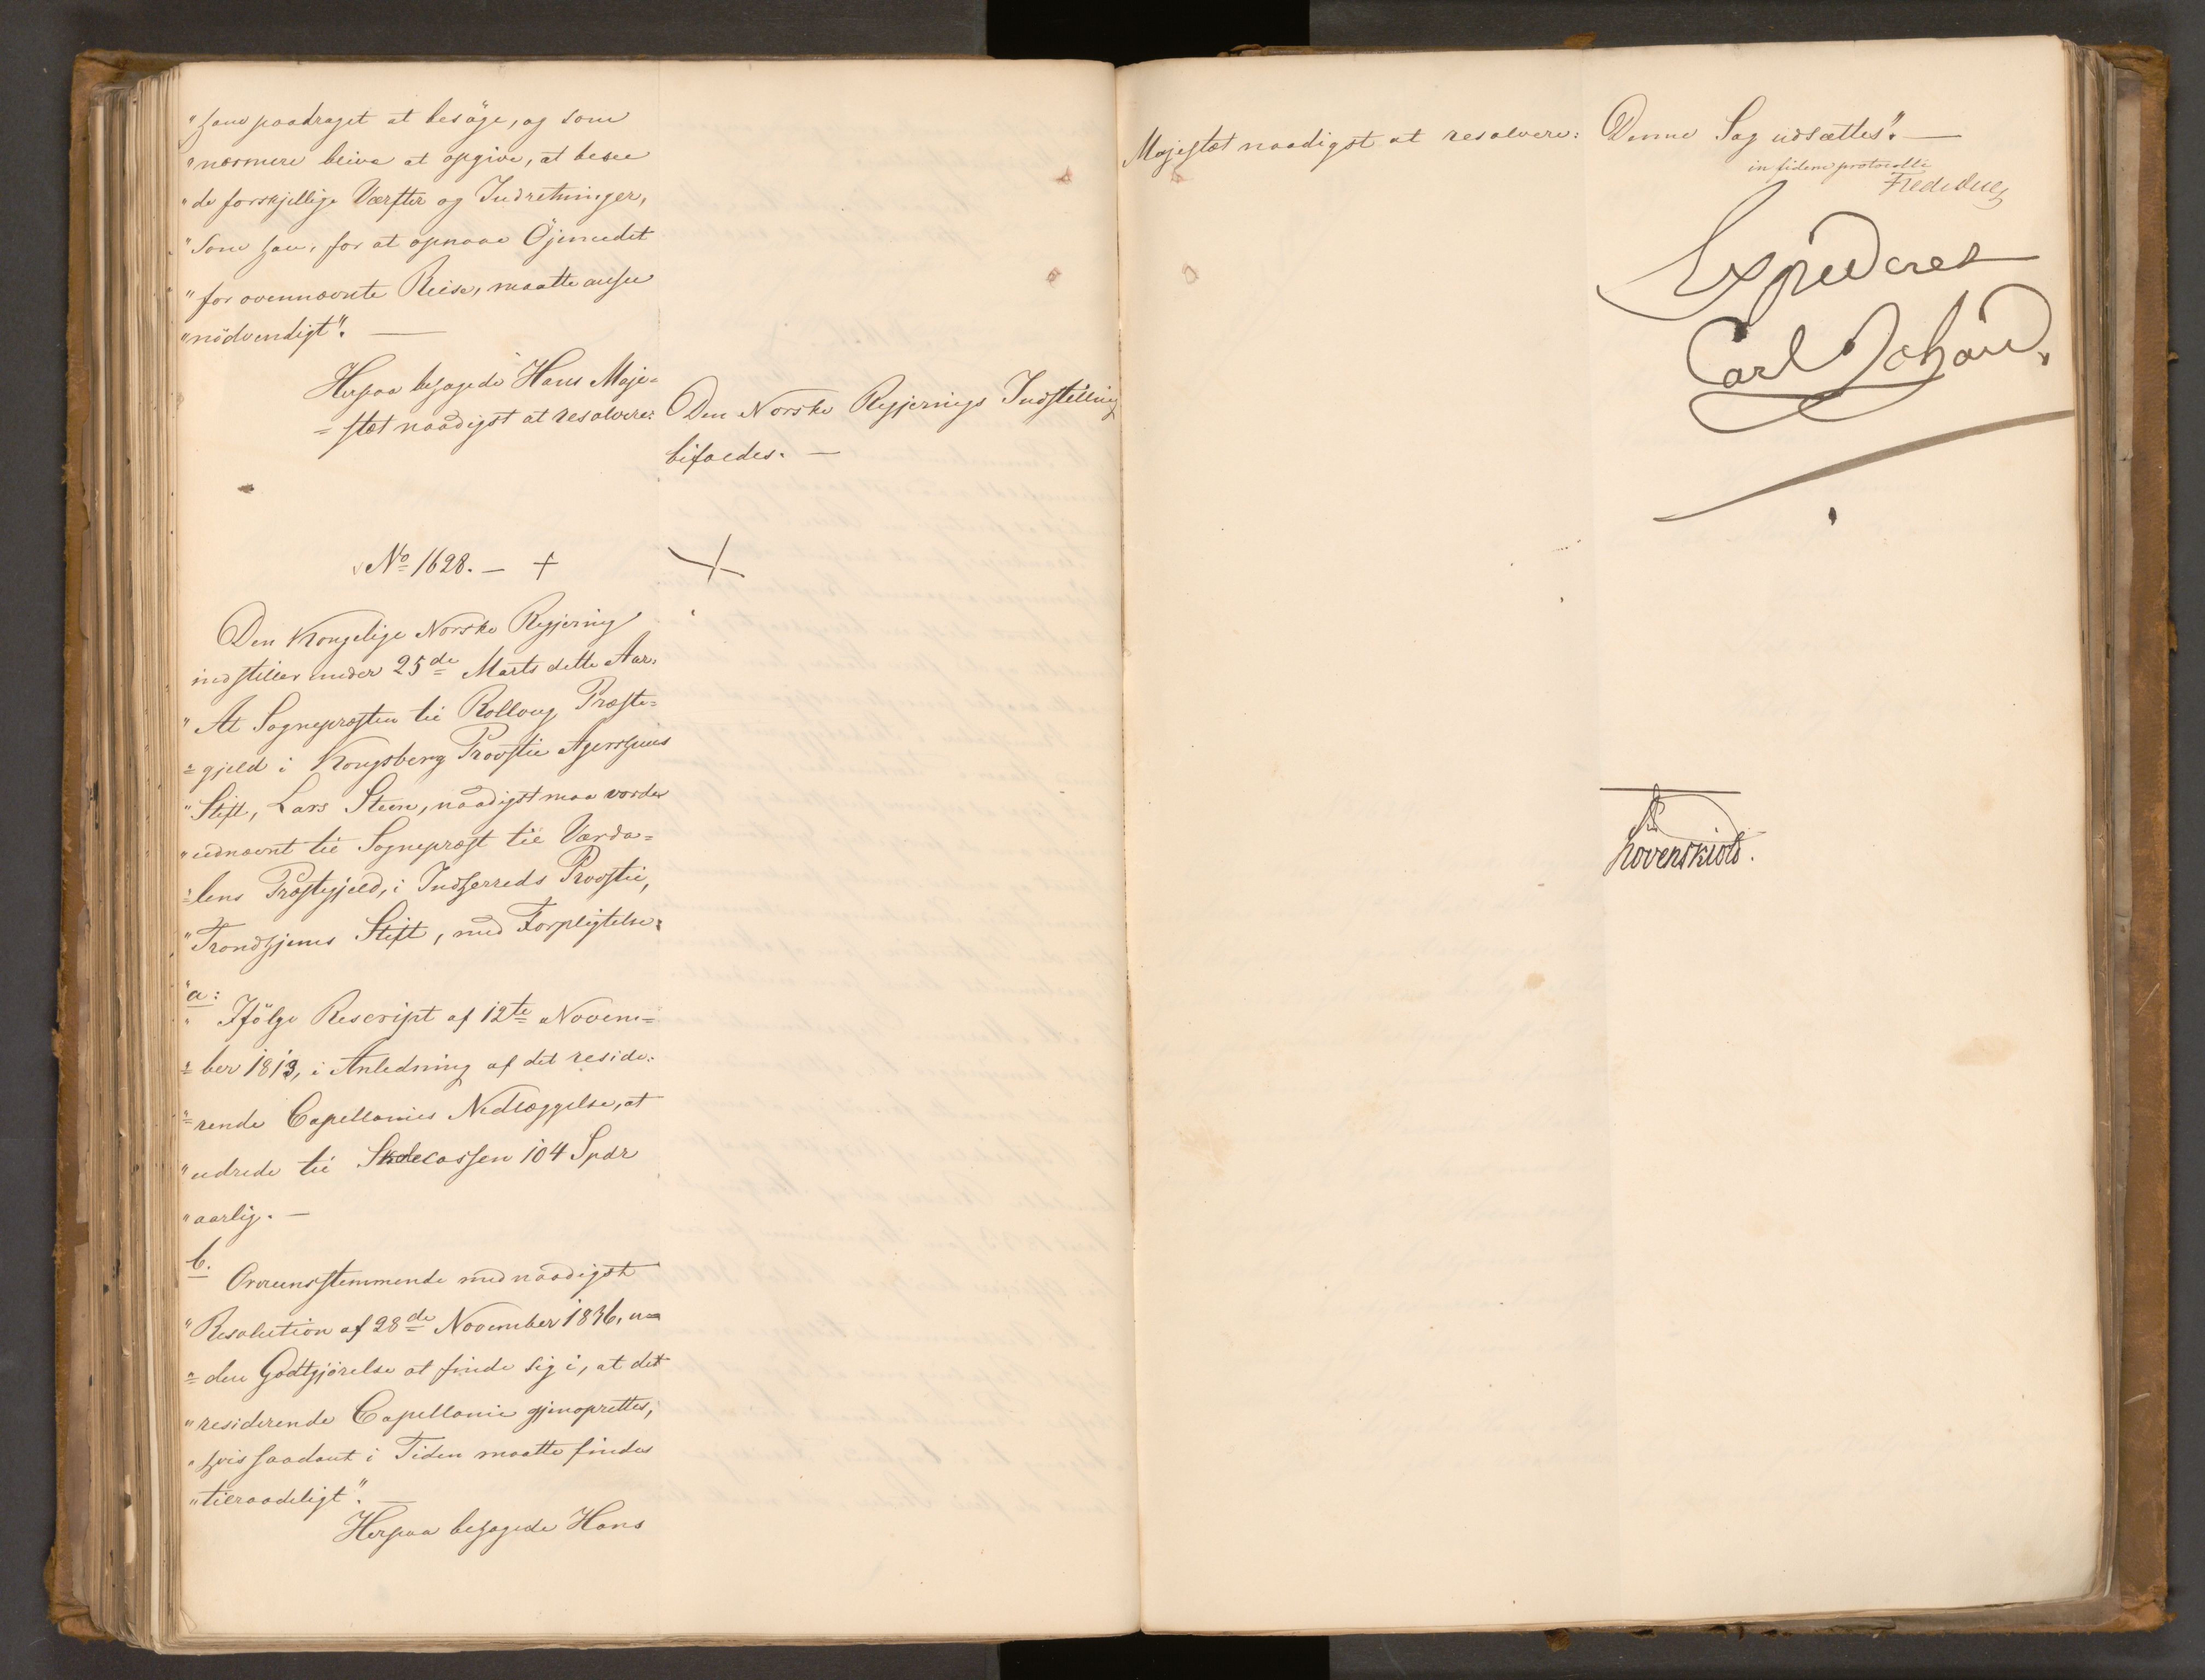 "ham paadraget at besöge, og som
"nærmere blive at opgive, at besee
"de forskjellige Værfter og Indretninger,
"som han, for at opnaae Öjemedet
"for ovennævnte Reise, maatte ansee
"nödvendigt". —
Herpaa behagede Hans Maje-
-stæt naadigst at resolvere:
Den Norske Regjerings Indstilling
bifaldes. —
No 1628. — +
Den Kongelige Norske Regjering
indstiller under 25de Marts dette Aar,
"At Sognepræsten til Rolloug Præste-
"gjeld i Kongsberg Provstie Agershuus
"Stift, Lars Steen, naadigst maa vorde
"udnævnt til Sognepræst til Værda-
"lens Præstegjeld, i Indherreds Provstie,
"Trondhjems Stift, med Forpligtelse:
"a:
" Ifölge Rescript af 12te Novem-
"ber 1813, i Anledning af det reside-
"rende Capellanies Nedlæggelse, at
"udrede til Skolecassen 104 Spdr
"aarlig. —
b.
Overeensstemmende med naadigst
"Resolution af 28de November 1836, u-
"den Godtgjörelse at finde sig i, at det
"residerende Capellanie gjenoprettes,
"hvis saadant i Tiden maatte findes
"tilraadeligt". —
Herpaa behagede Hans
Majestæt naadigst at resolvere:
Denne Sag udsættes". —
in fidem protocolli
Fred. Due
Expederes
Carl Johan.
Lövenskiold.